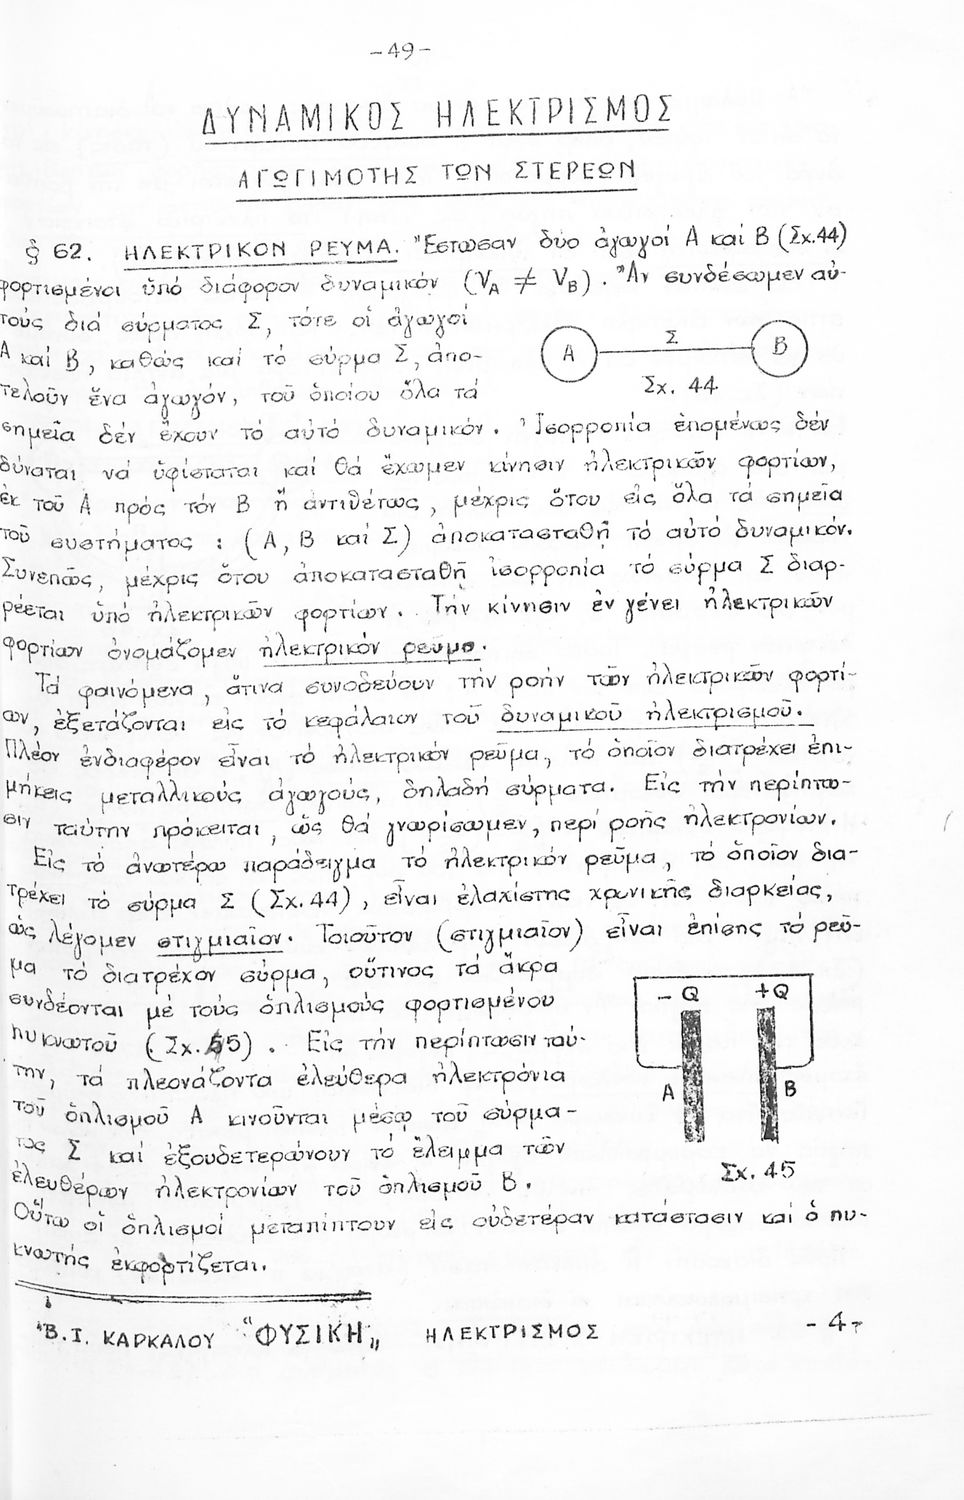 -49-
ΔΥΝΑΜΙΚΟΣ ΗΛΕΚΤΡΙΣΜΟΣ
ΑΓΩΓΙΜΟΤΗΣ ΤΩΝ ΣΤΕΡΕΩΝ
§ 62. ΗΛΕΚΤΡΙΚΟΝ ΡΕΥΜΑ. Ἔστωσαν δύο ἀγωγοί Α καί Β (Σχ.44)
φορτισμένοι ὑπό διάφορον δυναμικόν (VA ≠ VB). Ἄν συνδέσωμεν αὐ-
τούς διά σύρματος Σ, τότε οἱ ἀγωγοί
Α καί Β, καθώς καί τό σύρμα Σ, ἀπο-
τελοῦν ἕνα ἀγωγόν, τοῦ ὁποίου ὅλα τά
σημεῖα δέν ἔχουν τό αὐτό δυναμικόν. Ἰσορροπία ἑπομένως δέν
δύναται νά ὑφίσταται καί θά ἔχωμεν κίνησιν ἠλεκτρικῶν φορτίων,
ἐκ τοῦ Α πρός τόν Β ἤ ἀντιθέτως, μέχρις ὅτου εἰς ὅλα τά σημεῖα
τοῦ συστήματος : (Α, Β καί Σ) ἀποκατασταθῇ τό αὐτό δυναμικόν.
Συνεπῶς, μέχρις ὅτου ἀποκατασταθῇ ἰσορροπία τό σύρμα Σ διαρ-
ρέεται ὑπό ἠλεκτρικῶν φορτίων. Τήν κίνησιν ἐν γένει ἠλεκτρικῶν
φορτίων ὀνομάζομεν ἠλεκτρικόν ρεῦμα.
Τά φαινόμενα, ἅτινα συνοδεύουν τήν ροήν τῶν ἠλεκτρικῶν φορτί-
ων, ἐξετάζονται εἰς τό κεφάλαιον τοῦ δυναμικοῦ ἠλεκτρισμοῦ.
Πλέον ἐνδιαφέρον εἶναι τό ἠλεκτρικόν ρεῦμα, τό ὁποῖον διατρέχει ἐπι-
μήκεις μεταλλικούς ἀγωγούς, δηλαδή σύρματα. Εἰς τήν περίπτω-
σιν ταύτην πρόκειται, ὡς θά γνωρίσωμεν, περί ροῆς ἠλεκτρονίων.
Εἰς τό ἀνωτέρω παράδειγμα τό ἠλεκτρικόν ρεῦμα, τό ὁποῖον δια-
τρέχει τό σύρμα Σ (Σχ.44), εἶναι ἐλαχίστης χρονικῆς διαρκείας,
ὡς λέγομεν στιγμιαῖον. Τοιοῦτον (στιγμιαῖον) εἶναι ἐπίσης τό ρεῦ-
μα τό διατρέχον σύρμα, οὕτινος τά ἄκρα
συνδέονται μέ τούς ὁπλισμούς φορτισμένου
πυκνωτοῦ (Σχ.45). Εἰς τήν περίπτωσιν ταύ-
την, τά πλεονάζοντα ἐλεύθερα ἠλεκτρόνια
τοῦ ὁπλισμοῦ Α κινοῦνται μέσῳ τοῦ σύρμα-
τος Σ καί ἐξουδετερώνουν τό ἔλειμμα τῶν
ἐλευθέρων ἠλεκτρονίων τοῦ ὁπλισμοῦ Β.
Οὕτω οἱ ὁπλισμοί μεταπίπτουν εἰς οὐδετέραν κατάστασιν καί ὁ πυ-
κνωτής ἐκφορτίζεται.
Α Σ Β
Σχ. 44
- Q +Q
Α Β
Σχ. 45
Β.Ι. ΚΑΡΚΑΛΟΥ "ΦΥΣΙΚΗ" ΗΛΕΚΤΡΙΣΜΟΣ -4-